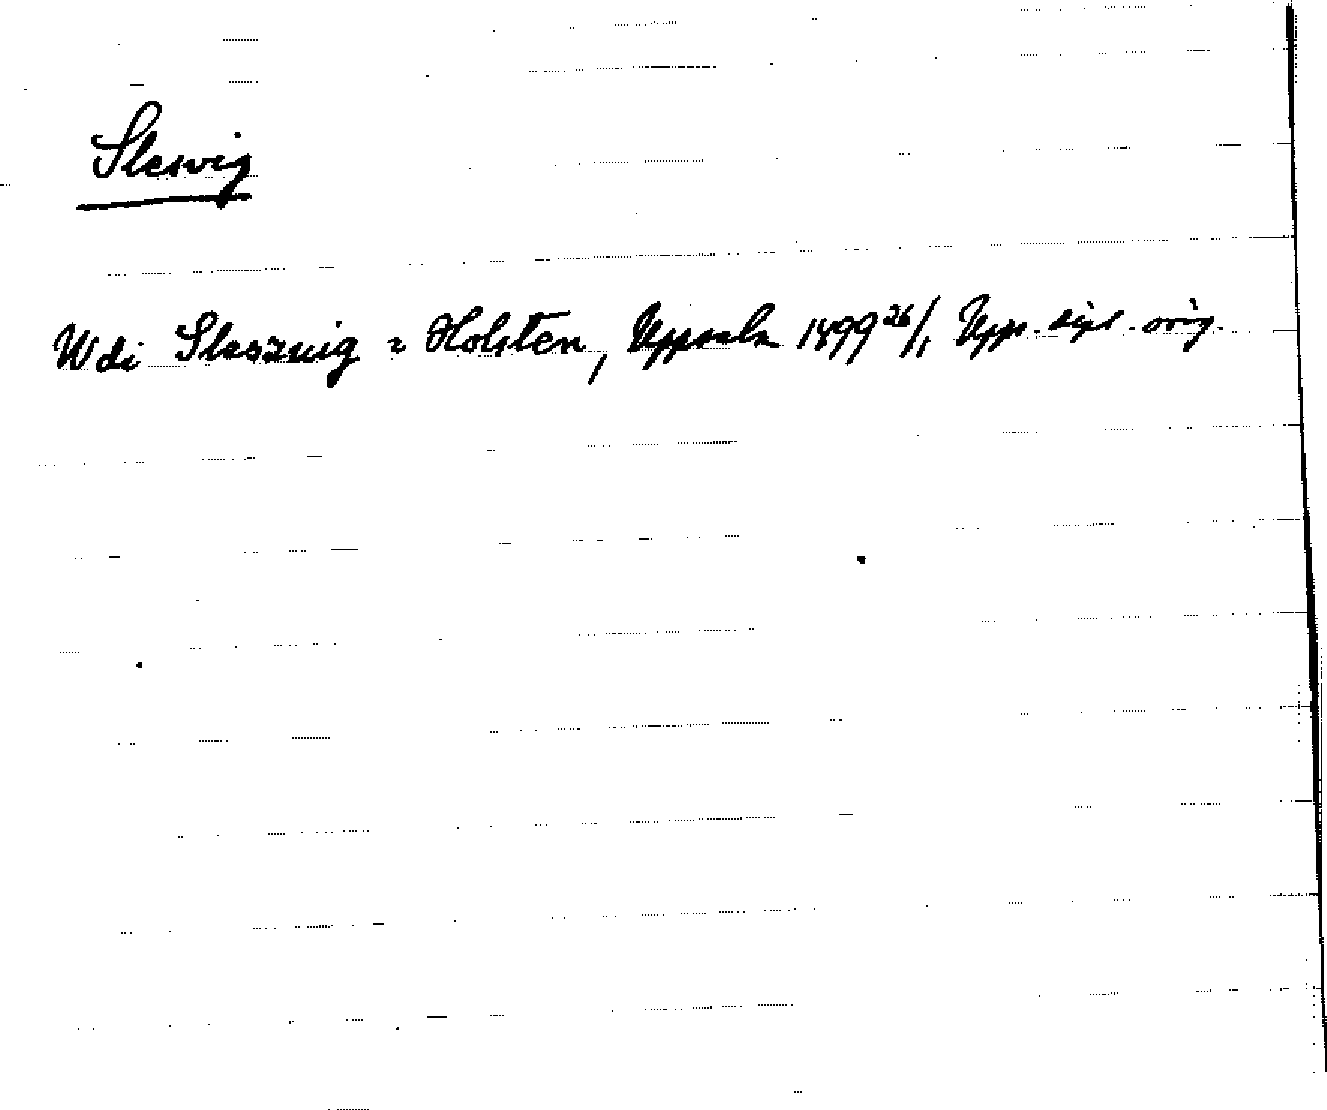 Slesvig
W di Sleszuig z Holsten, Uppsala 1499 26/1 Upps. dipl. orig.